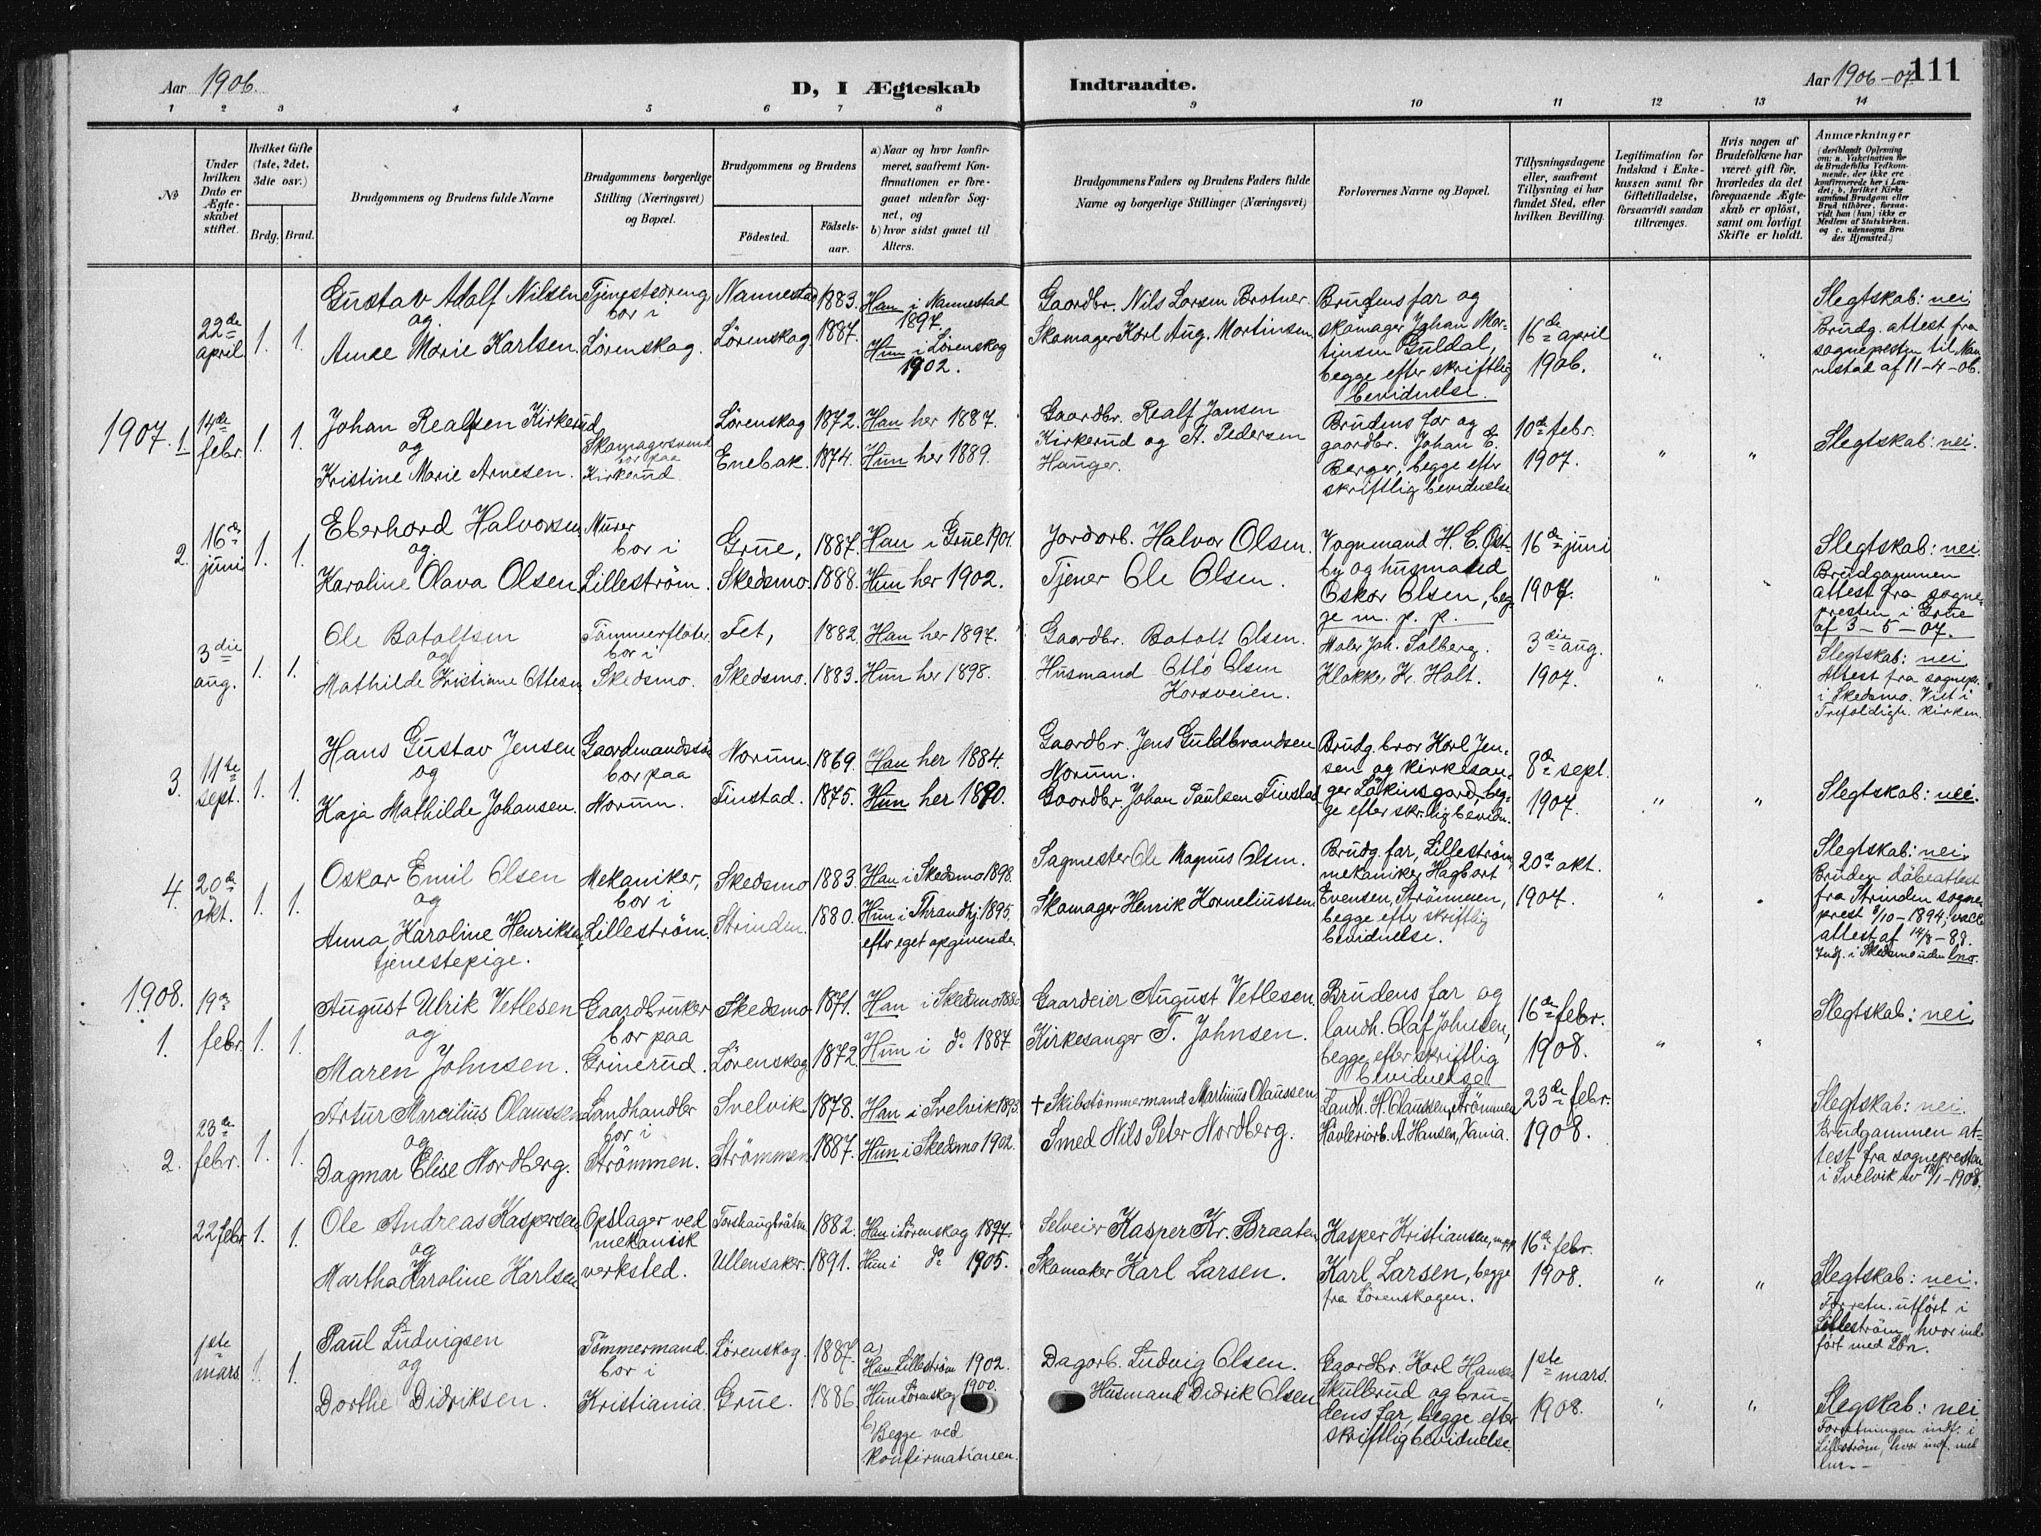 Aar 1906. D, I Ægteskab Indtraadte. Aar 1906-07 111
1 2 3 4 5 6 7 8 9 10 11 12 13 14
No
Under hvilken Dato er Ægteskabet stiftet.
Hvilket Gifte (1ste, 2det, 3die osv.)
Brdg. Brud.
Brudgommens og Brudens fulde Navne
Brudgommens borgerlige Stilling (Næringsvei) og Bopæl.
Brudgommens og Brudens
Fødested.
Fødselsaar.
a) Naar og hvor konfirmeret, saafremt Konfirmationen er foregaaet udenfor Sognet, og
b) hvor sidst gaaet til Alters.
Brudgommens Faders og Brudens Faders fulde Navne og borgerlige Stillinger (Næringsvei)
Forlovernes Navne og Bopæl.
Tillysningsdagene eller, saafremt Tillysning ei har fundet Sted, efter hvilken Bevilling.
Legitimation for Indskud i Enkekassen samt for Giftetilladelse, forsaavidt saadan tiltrænges.
Hvis nogen af Brudefolkene har været gift før, hvorledes da det foregaaende Ægteskab er opløst, samt om lovligt Skifte er holdt.
Anmærkninger (deriblandt Oplysning om: a. Vakcination for de Brudefolks Vedkommende, der ikke ere konfirmerede her i Landet; b. hvilket Kirkesamfund Brudgom eller Brud tilhører, forsaavidt han (hun) ikke er Medlem af Statskirken, og c. udensogns Brudes Hjemsted.)
22de april 1. 1.
Gustav Adolf Nilsen
og
Anne Marie Karlsen
Tjenestedreng
bor i
Lörenskog.
Nannestad 1883.
Lörenskog 1887.
Han i Nannestad
1897
Hun i Lörenskog
1902.
Gaardbr. Nils Larsen Brotner
Skomager Karl Aug. Martinsen
Brudens far og
skomager Johan Mar-
tinsen Guldal,
begge efter skriftlig
bevidnelse.
16de april
1906.
" "
Slegtskab: nei
Brudg. attest fra
sognepresten til Nan-
nestad af 11-4-06.
1907. 1 14de febr. 1. 1.
Johan Realfsen Kirkerud
og
Kristine Marie Arnesen.
Skomagersvend
bor paa
Kirkerud
Lörenskog 1872.
Enebak 1874.
Han her 1887.
Hun her 1889.
Gaardbr. Realf Jansen
Kirkerud og A. Pedersen
Hauger.
Brudens far og
gaardbr. Johan E.
Berger, begge efter
skriftlig bevidnelse
10de febr.
1907.
" "
Slegtskab: nei.
2. 16de juni 1. 1.
Eberhard Halvorsen
og
Karoline Olava Olsen
Murer
bor i
Lilleström.
Grue, 1887.
Skedsmo. 1888.
Han i Grue 1901.
Hun her 1902.
Jordarb. Halvor Olsen.
Tjener Ole Olsen.
Vognmand H. E. Öst-
by og husmand
Oskar Olsen, beg-
ge m. p. p.
16de juni
1907.
" "
Slegtskab: nei
Brudgommen
attest fra sogne-
presten i Grue
af 3-5-07.
3die aug. 1. 1.
Ole Batolfsen
og
Mathilde Kristiane Ottesen
Tömmerflöter
bor i
Skedsmo.
Fet, 1882.
Skedsmo. 1883.
Han her 1897.
Hun her 1898.
Gaardbr. Batolf Olsen.
Husmand Otto Olsen
Korsveien.
Maler Joh. Solberg.
Klokker K. Holt.
3die aug.
1907.
" "
Slegtskab: nei
Attest fra sognepr.
i Skedsmo. Viet i
Trefoldigh. kirken.
3. 11te sept. 1. 1.
Hans Gustav Jensen
og
Kaja Mathilde Johansen.
Gaardmandssön
bor paa
Norum.
Norum. 1869.
Finstad. 1875.
Han her 1884.
Hun her 1890.
Gaardbr. Jens Guldbrandsen
Norum.
Gaardbr. Johan Paulsen Finstad
Brudg. bror Karl Jen-
sen og kirkesan-
ger Lökinsgard, beg-
ge efter skr.lig bevidn.
8de sept.
1907.
" "
Slegtskab: nei.
4. 20de okt. 1. 1.
Oskar Emil Olsen
og
Anna Karoline Henriksen,
tjenestepige.
Mekaniker,
bor i
Lilleström.
Skedsmo 1883.
Strinden. 1880.
Han i Skedsmo 1898.
Hun i Thrandhj. 1895.
eftr eget opgivende.
Sagmester Ole Magnus Olsen.
Skomager Henrik Korneliussen
Brudg. far, Lilleström,
mekaniker Hagbart
Evensen, Strömmen,
begge efter skriftlig
bevidnelse.
20de okt.
1907.
" "
Slegtskab: nei.
Bruden döbeattest
fra Strinden sogne-
prest 9/10-1894; vacc.
attest af 14/8-88.
Indf. i Skedsmo uden Lno.
1908. 1. 19de febr. 1. 1.
August Ulrik Vetlesen
og
Maren Johnsen.
Gaardbruker
bor paa
Grinerud.
Skedsmo 1871.
Lörenskog 1872.
Han i Skedsmo 1886
Hun i do 1887.
Gaardeier August Vetlesen.
Kirkesanger T. Johnsen.
Brudens far og
landh. Olaf Johnsen,
begge efter skriftlig
bevidnelse
16de febr.
1908.
" "
Slegtskab: nei
2. 23de febr. 1. 1.
Artur Marcilius Olaussen
og
Dagmar Elise Nordberg.
Landhandler
bor i
Strömmen.
Svelvik 1878.
Strömmen 1887.
Han i Svelvik 1893.
Hun i Skedsmo 1902.
+ Skibstömmermand Martinus Olaussen
Smed Nils Peter Nordberg.
Landh. H. Olaussen, Strömmen
Hövleriarb. A. Hansen, Xania.
23de febr.
1908.
Slegtskab: nei.
Brudgommen at-
test fra sognepresten
i Svelvik av 18/1-1908.
22 febr. 1. 1.
Ole Andreas Kaspersen
og
Martha Karoline Karlsen
Opslager ved
mekanisk
verksted.
Torshaugbråten 1882.
Ullensaker. 1891.
Han i Lörenskog 1897.
Hun i do 1905.
Selveier Kasper Kr. Braaten
Skomaker Karl Larsen.
Kasper Kristiansen, m.p.p.
Karl Larsen, begge
fra Lörenskogen.
16de febr.
1908.
" "
Slegtskab: nei.
Forretn. utfört i
Lilleström, hvor ind-
fört med Lön.
1ste mars 1. 1.
Paul Ludvigsen
og
Dorthe Didriksen.
Tömmermand.
bor i
Kristiania.
Lörenskog. 1887.
Grue. 1886.
a)
Han Lilleström 1902.
Hun Lörenskog 1900.
b) Begge ved
konfirmationen.
Dagarb. Ludvig Olsen.
Husmand Didrik Olsen
Gaardbr. Karl Hansen
Skullerud og bru-
dens far, begge efter
skriftlig bevidnelse.
1ste mars.
1908.
" "
Slegskab: nei
Forretningen indf. i
Lilleström, hvor indf. med